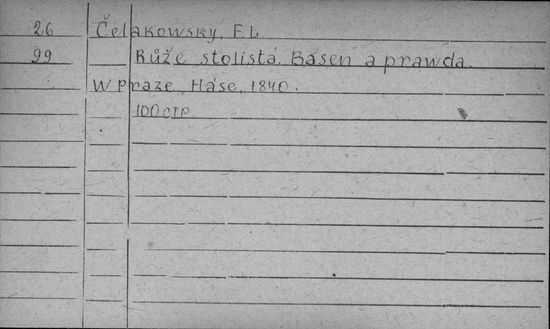 26 Čelakowsky, F. L.
99 Růže stolistá. Básen a prawda.
W Praze, Háse, 1840.
100 стр.